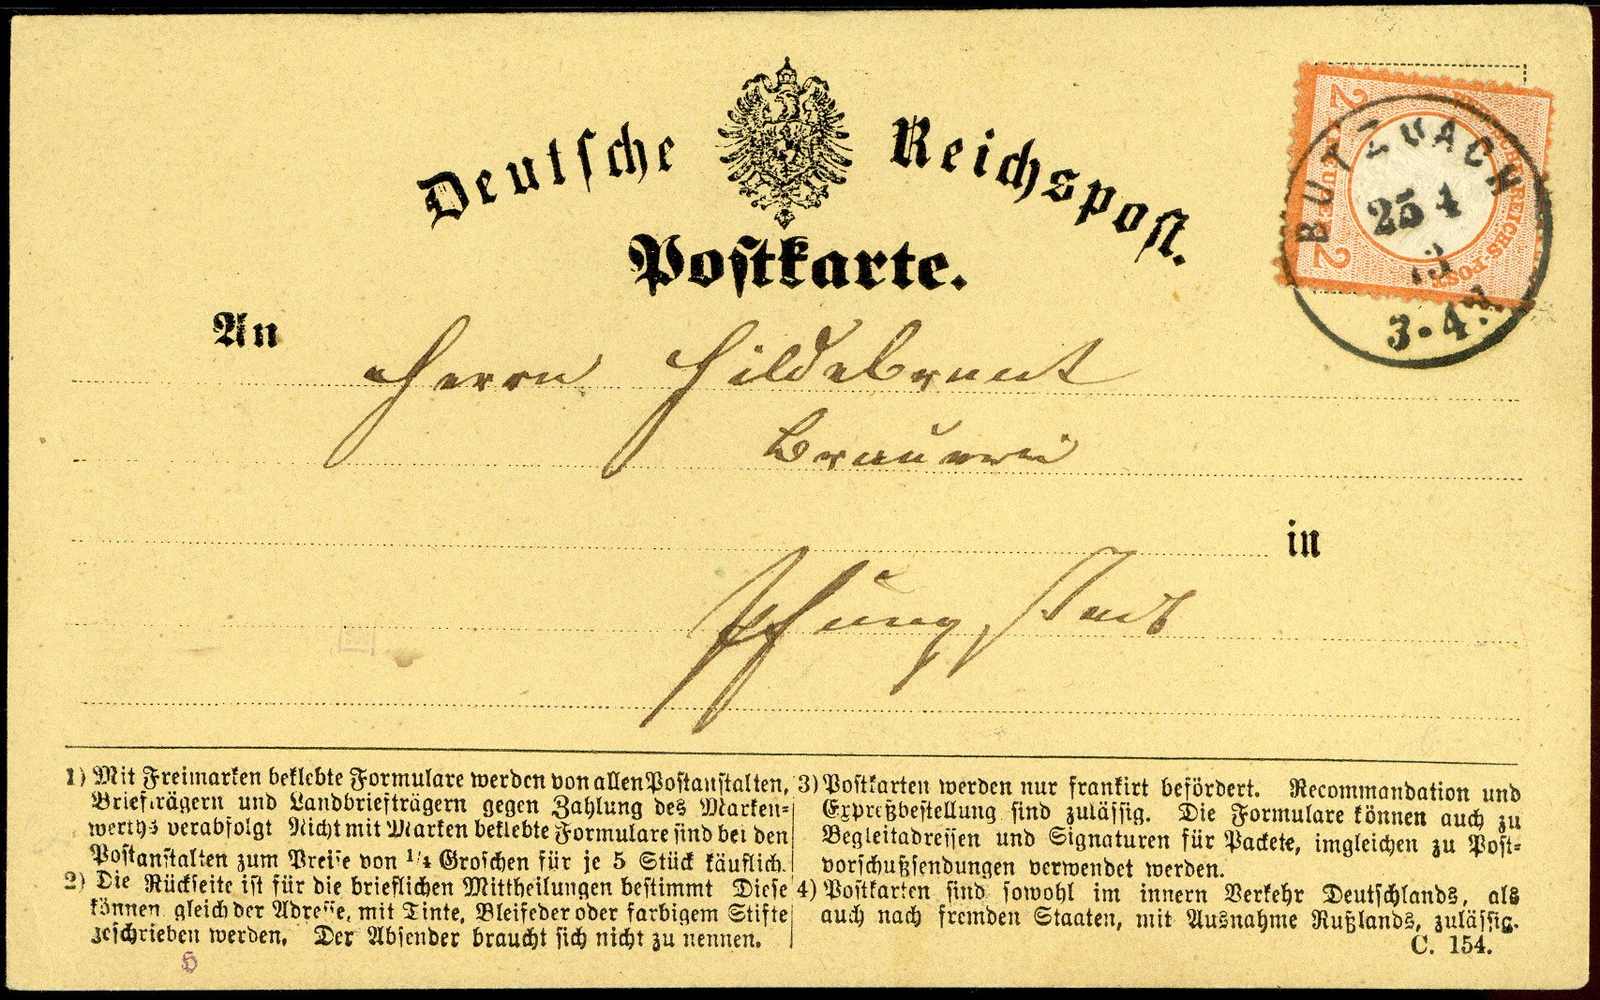 Deutsche Reichspost.
Postkarte.
BUTZBACH
25 4
73
3-4.N.
2 2
DEUTSCHE REICHS-POST
An
Herrn Hildebrant
Brauerei
in
Pfungstadt
1) Mit Freimarken beklebte Formulare werden von allen Postanstalten,
Briefträgern und Landbriefträgern gegen Zahlung des Marken-
werths verabfolgt Nicht mit Marken beklebte Formulare sind bei den
Postanstalten zum Preise von 1/4 Groschen für je 5 Stück käuflich.
2) Die Rückseite ist für die brieflichen Mittheilungen bestimmt Diese
können gleich der Adresse, mit Tinte, Bleifeder oder farbigem Stifte
geschrieben werden. Der Absender braucht sich nicht zu nennen.
3) Postkarten werden nur frankirt befördert. Recommandation und
Expreßbestellung sind zulässig. Die Formulare können auch zu
Begleitadressen und Signaturen für Packete, imgleichen zu Post-
vorschußsendungen verwendet werden.
4) Postkarten sind sowohl im innern Verkehr Deutschlands, als
auch nach fremden Staaten, mit Ausnahme Rußlands, zulässig.
C. 154.